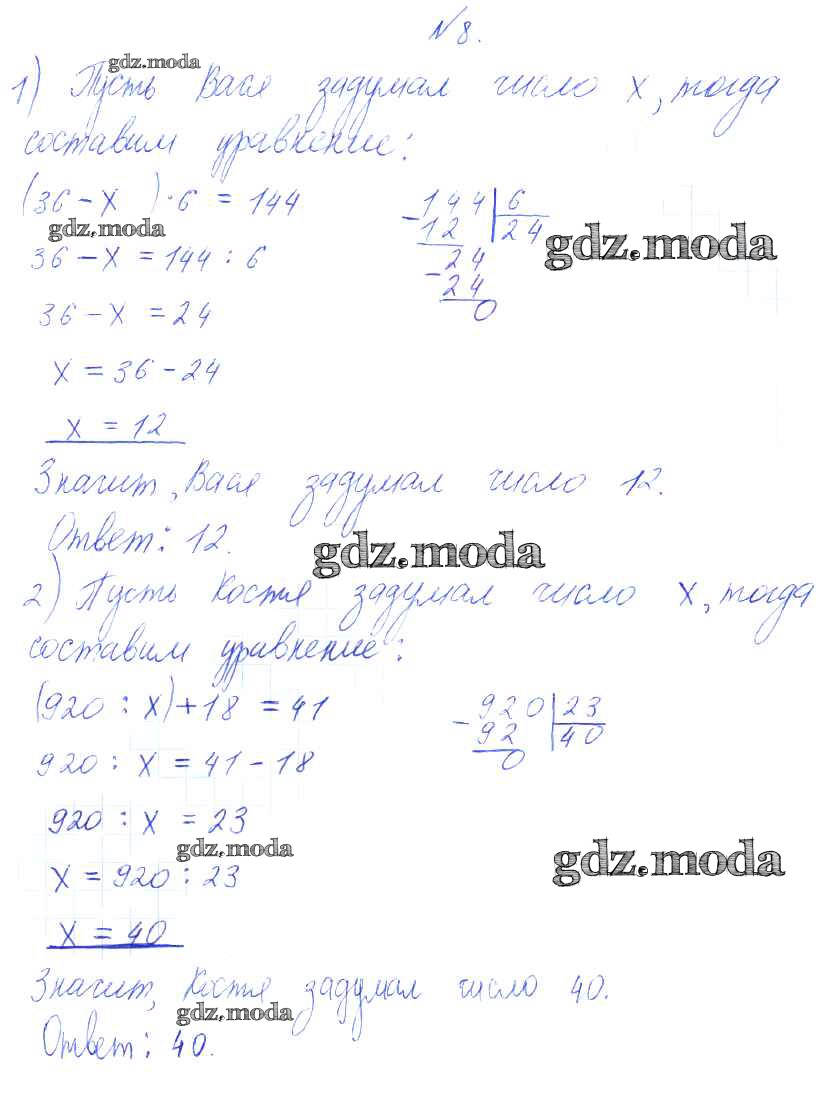 №8.
gdz.moda
1) Пусть Вася задумал число х, тогда
составим уравнение:
(36 - х ) · 6 = 144
gdz.moda
36 - х = 144 : 6
36 - х = 24
х = 36 - 24
х = 12
144 | 6
- 12 | 24
24
- 24
0
gdz.moda
Значит, Вася задумал число 12.
Ответ: 12.
gdz.moda
2) Пусть Костя задумал число х, тогда
составим уравнение:
(920 : х) + 18 = 41
920 : х = 41 - 18
920 : х = 23
gdz.moda
х = 920 : 23
х = 40
- 920 | 23
92 | 40
0
gdz.moda
Значит, Костя задумал число 40.
gdz.moda
Ответ: 40.